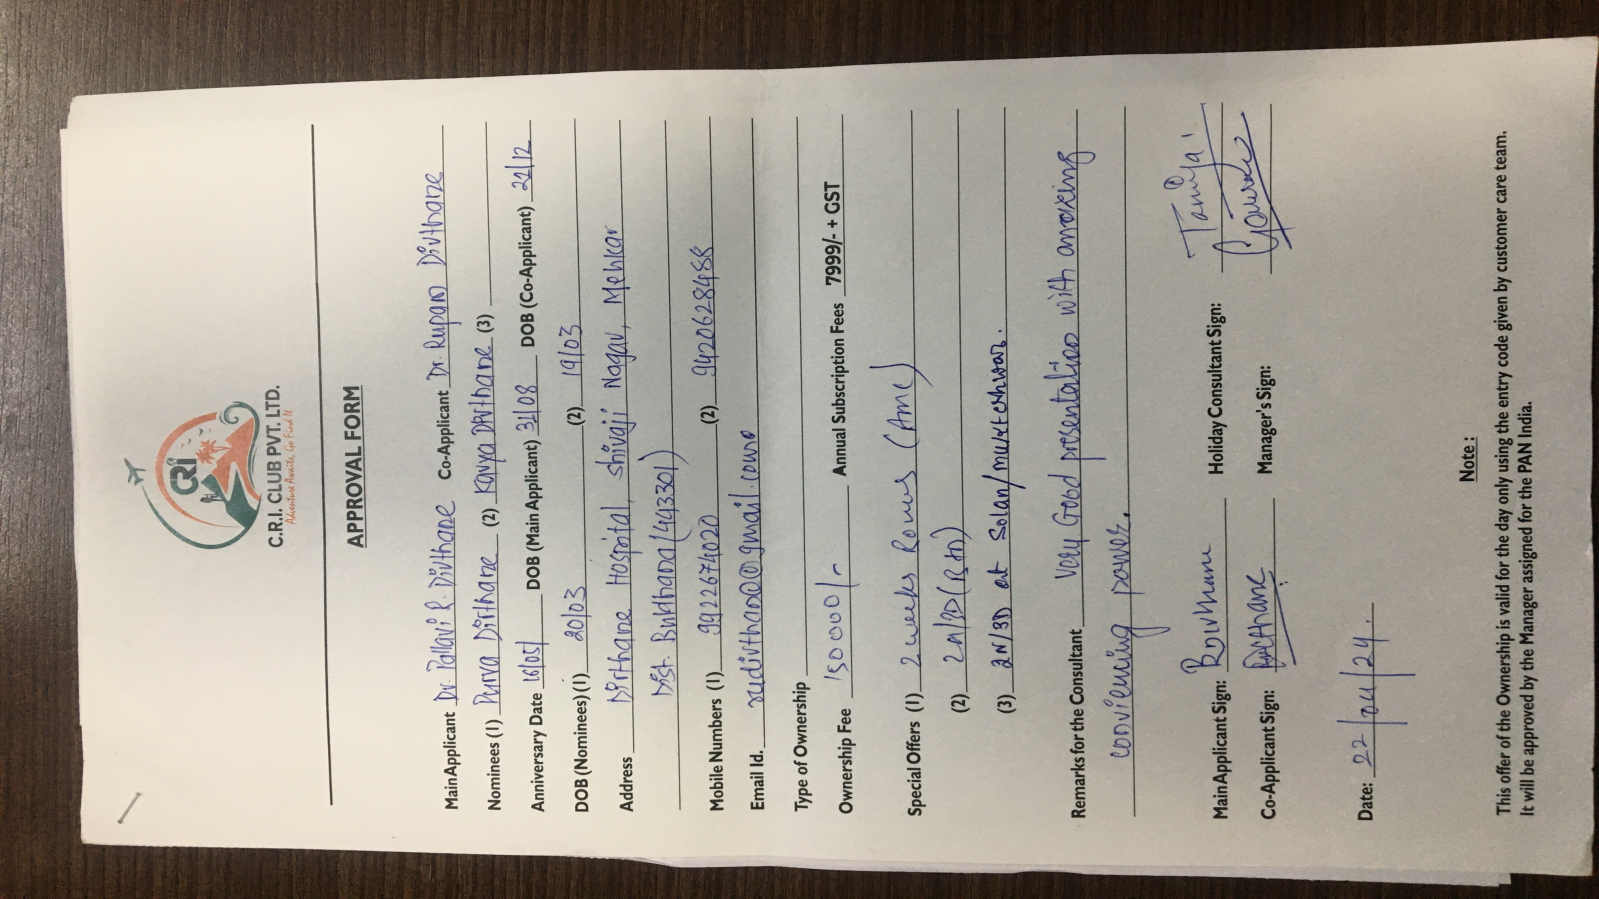 CRI
C.R.I. CLUB PVT. LTD.
Adventure Awaits, Go Find It.
APPROVAL FORM
Main Applicant Dr. Pallavi R. Divthane Co-Applicant Dr. Rupam Divthane
Nominees (1) Purva Divthane (2) Kavya Divthane (3)
Anniversary Date 16/05/ DOB (Main Applicant) 31/08 DOB (Co-Applicant) 21/12
DOB (Nominees) (1) 20/03 (2) 19/03
Address Divthane Hospital, Shivaji Nagar, Mehkar
Dist. Buldhana (443301)
Mobile Numbers (1) 9922674020 (2) 9420628488
Email Id. @gmail.com
Type of Ownership
Ownership Fee 150000/- Annual Subscription Fees 7999/- + GST
Special Offers (1) 2 weeks Rooms (Amc)
(2) 2N/3D
(3) 2N/3D at Solan/
Remarks for the Consultant Very Good presentation with amazing
conviencing power.
Main Applicant Sign: Holiday Consultant Sign: Tanuja
Co-Applicant Sign: Divthane Manager's Sign:
Date: 22/04/24.
Note :
This offer of the Ownership is valid for the day only using the entry code given by customer care team.
It will be approved by the Manager assigned for the PAN India.